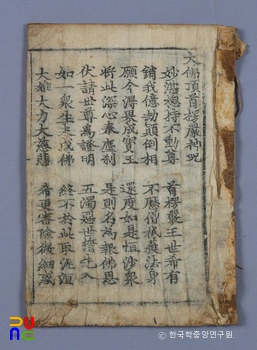 大佛頂首楞嚴神呪
妙湛摠持不動尊 首楞嚴王世希有
銷我億劫顛倒想 不歷僧祇獲法身
願今得果成寶王 還度如是恒沙衆
將此深心奉塵刹 是則名爲報佛恩
伏請世尊爲證明 五濁惡世誓先入
如一衆生未成佛 終不於此取泥洹
大雄大力大慈悲 希更審除微細惑
ⓒ 한국학중앙연구원